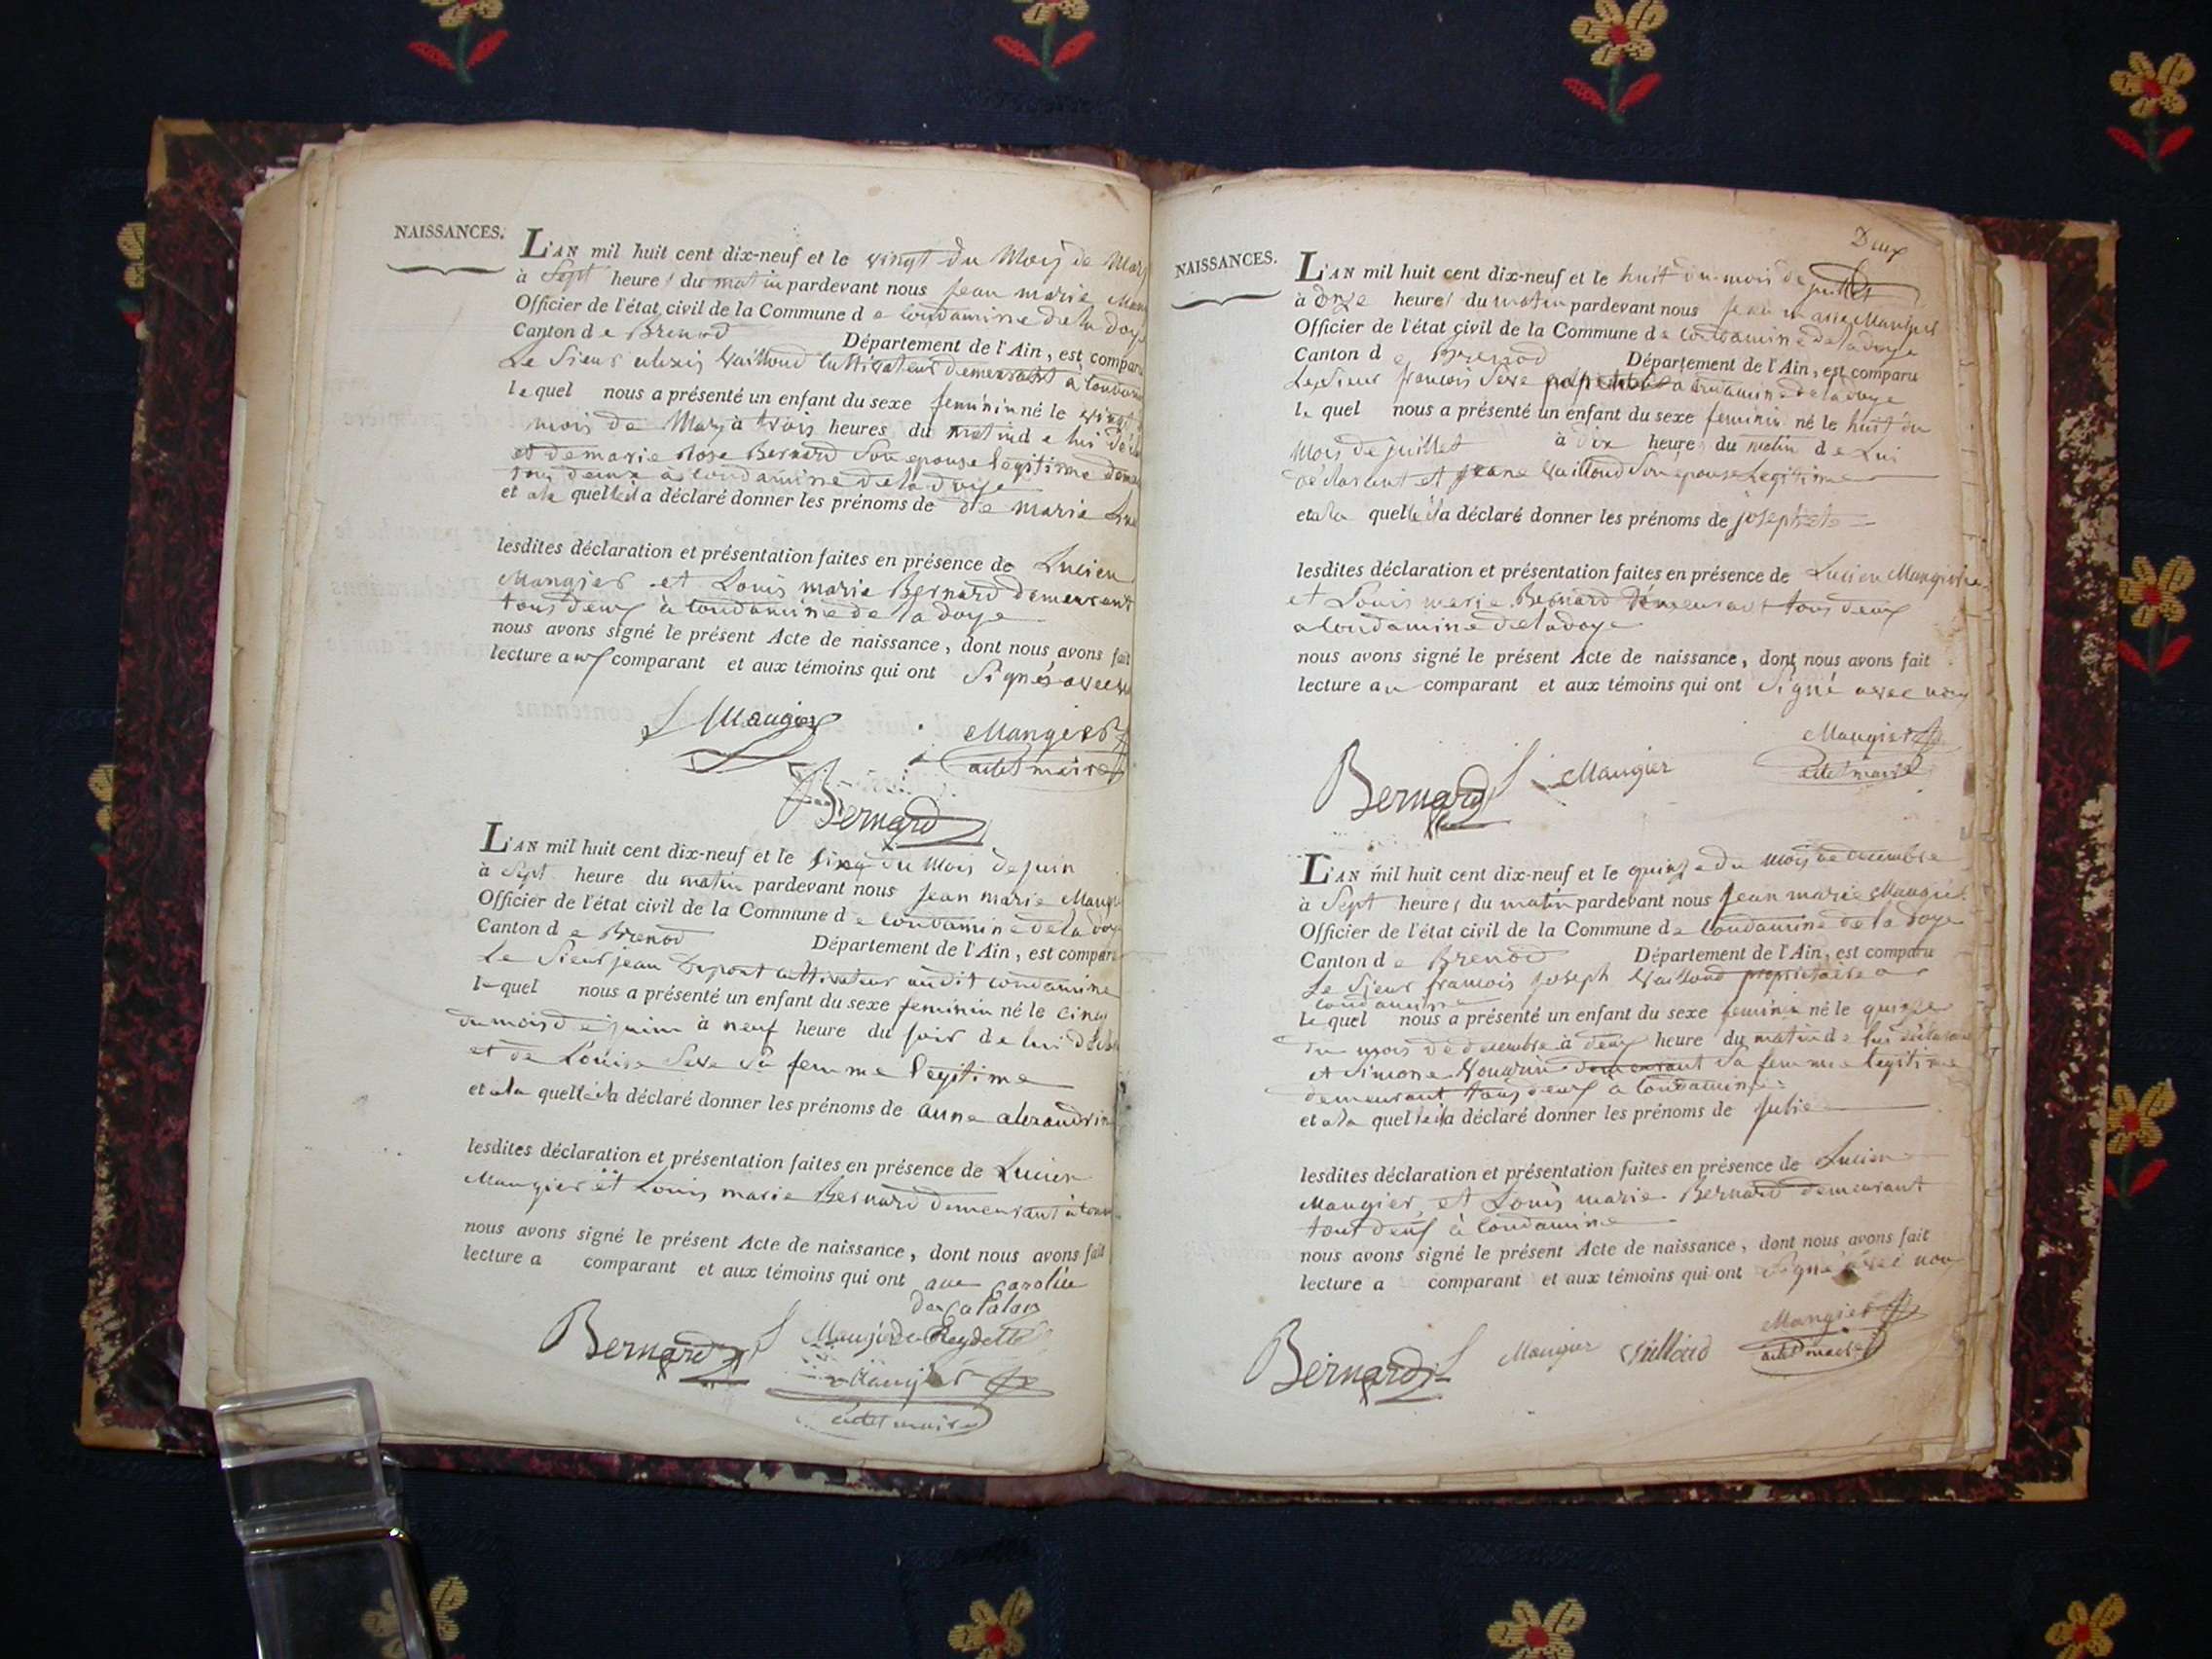 NAISSANCES.
L'AN mil huit cent dix-neuf et le vingt du Mois de Mars
à Sept heures du matin pardevant nous jean marie
Officier de l'état civil de la Commune de Condamine de la doye
Canton de Brenod Département de l'Ain, est comparu
Le Sieur alexis Vailloud Cultivateur demeurant à
lequel nous a présenté un enfant du sexe feminin né le vingt
mois de Mars à trois heures du matin de lui
et de marie Rose Bernard Son epouse legitime
tous deux à Condamine de la doye
et a la quelle il a déclaré donner les prénoms de de marie
lesdites déclaration et présentation faites en présence de Lucien
Mangier et Louis marie Bernard demeurant
tous deux à Condamine de la doye
nous avons signé le présent Acte de naissance, dont nous avons fait
lecture aux comparant et aux témoins qui ont Signés avec
L Maugier Mangier
adet maire
Bernard
L'AN mil huit cent dix-neuf et le Cinq du Mois de juin
à Sept heure du matin pardevant nous jean marie
Officier de l'état civil de la Commune de Condamine de la doye
Canton de Brenod Département de l'Ain, est comparu
Le Sieur jean Dupont cultivateur audit Condamine
lequel nous a présenté un enfant du sexe feminin né le cinq
du mois de juin à neuf heure du soir de lui
et de Louise Seve sa femme legitime
et a la quelle il a déclaré donner les prénoms de anne alexandrine
lesdites déclaration et présentation faites en présence de Lucien
Maugier et Louis marie Bernard demeurant à
nous avons signé le présent Acte de naissance, dont nous avons fait
lecture a comparant et aux témoins qui ont
Bernard Maugier
Maugier
adet maire
Deux
NAISSANCES.
L'AN mil huit cent dix-neuf et le huit du mois de juillet
à onze heures du matin pardevant nous jean marie Maugier
Officier de l'état civil de la Commune de Condamine de la doye
Canton de Brenod Département de l'Ain, est comparu
Le Sieur francois Seve a Condamine de la doye
le quel nous a présenté un enfant du sexe feminin né le huit du
Mois de juillet à dix heures du matin de Lui
déclarent et jeane Vailloud Son epouse Legitime
et a la quelle il a déclaré donner les prénoms de josephete
lesdites déclaration et présentation faites en présence de Lucien
et Louis marie Bernard demeurant tous deux
a Condamine de la doye
nous avons signé le présent Acte de naissance, dont nous avons fait
lecture au comparant et aux témoins qui ont Signé avec nous
Maugier
Bernard L Maugier adet maire
L'AN mil huit cent dix-neuf et le quinze du mois de decembre
à Sept heures du matin pardevant nous Jean marie Maugier
Officier de l'état civil de la Commune de Condamine de la doye
Canton de Brenod Département de l'Ain, est comparu
Le Sieur francois joseph Vailloud proprietaire a
Condamine
le quel nous a présenté un enfant du sexe feminin né le quinze
du mois de decembre à deux heure du matin de lui déclarant
et Simone demeurant Sa femme legitime
demeurant tous deux a Condamine
et a la quelle il a déclaré donner les prénoms de julie
lesdites déclaration et présentation faites en présence de Lucien
Maugier, et Louis marie Bernard demeurant
tout deux à Condamine
nous avons signé le présent Acte de naissance, dont nous avons fait
lecture a comparant et aux témoins qui ont Signé avec nous
Mangier
Bernard L Maugier Vailloud adet maire